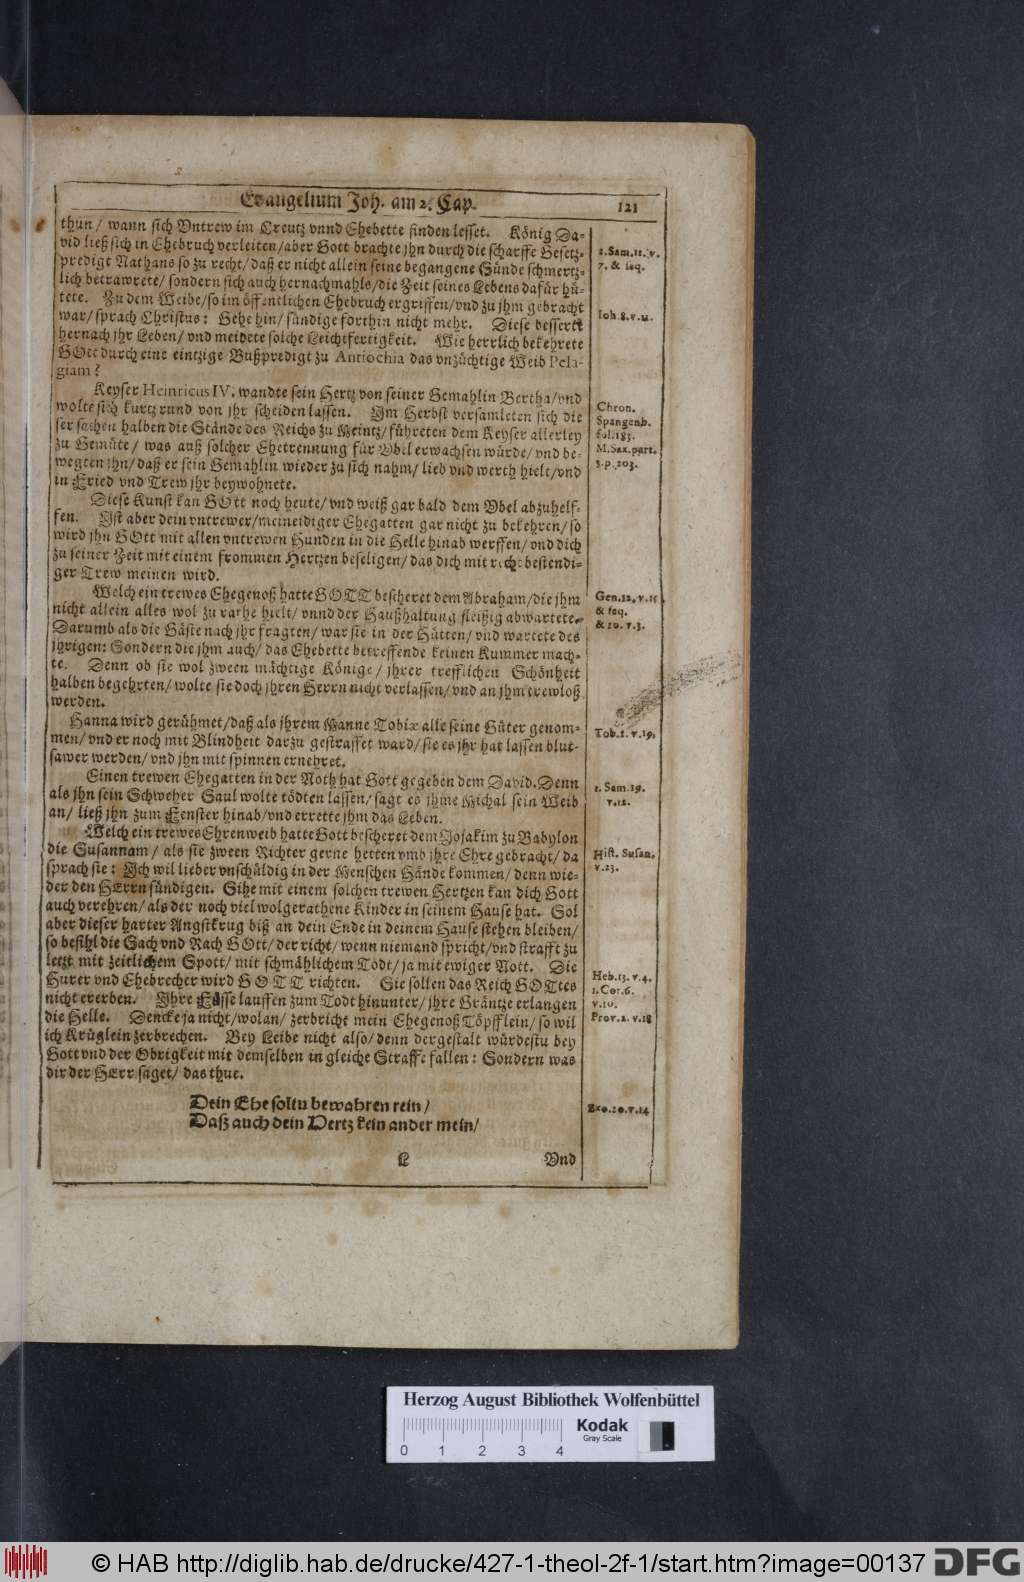 Evangelium Joh. am 2. Cap. 121
thun/ wann sich Vntrew im Creutz vnnd Ehebette finden lesset. König Da-
vid ließ sich in Ehebruch verleiten/ aber Gott brachte jhn durch die scharffe Gesetz-
predigt Nathans so zu recht/ daß er nicht allein seine begangene Sünde schmertz-
lich betrawrete/ sondern sich auch hernachmahls/ die Zeit seines Lebens dafür hü-
tete. Zu dem Weibe/ so im öffentlichen Ehebruch ergriffen/ vnd zu jhm gebracht
war/ sprach Christus: Gehe hin/ sündige forthin nicht mehr. Diese bessert
hernach jhr Leben/ vnd meidete solche Leichtfertigkeit. Wie herrlich bekehrete
GOtt durch eine eintzige Bußpredigt zu Antiochia das vnzüchtige Weib Pela-
giam?
Keyser Heinricus IV. wandte sein Hertz von seiner Gemahlin Bertha/ vnd
wolte sich kurtz rund von jhr scheiden lassen. Im Herbst versamleten sich die
ser sachen halben die Stände des Reichs zu Meintz/ führeten dem Keyser allerley
zu Gemüte/ was auß solcher Ehetrennung für Vbel erwachsen würde/ vnd be-
wegten jhn/ daß er sein Gemahlin wieder zu sich nahm/ lieb vnd werth hielt/ vnd
in Fried vnd Trew jhr beywohnete.
Diese Kunst kan GOtt noch heute/ vnd weiß gar bald dem Vbel abzuhelf-
fen. Ist aber dein vntrewer/ meineidiger Ehegatten gar nicht zu bekehren/ so
wird jhn GOtt mit allen vntrewen Hunden in die Helle hinab werffen/ vnd dich
zu seiner Zeit mit einem frommen Hertzen beseligen/ das dich mit recht bestendi-
ger Trew meinen wird.
Welch ein trewes Ehegenoß hatte GOTT bescheret dem Abraham/ die jhm
nicht allein alles wol zu rathe hielt/ vnnd der Haußhaltung fleißig abwartete.
Darumb als die Gäste nach jhr fragten/ war sie in der Hütten/ vnd wartete des
jhrigen: Sondern die jhm auch/ das Ehebette betreffende keinen Kummer mach-
te. Denn ob sie wol zween mächtige Könige/ jhrer trefflichen Schönheit
halben begehrten/ wolte sie doch jhren Herrn nicht verlassen/ vnd an jhm trewloß
werden.
Hanna wird gerühmet/ daß als jhrem Manne Tobiæ alle seine Güter genom-
men/ vnd er noch mit Blindheit darzu gestraffet ward/ sie es jhr hat lassen blut-
sawer werden/ vnd jhn mit spinnen ernehret.
Einen trewen Ehegatten in der Noth hat Gott gegeben dem David. Denn
als jhn sein Schweher Saul wolte tödten lassen/ sagt es jhme Michal sein Weib
an/ ließ jhn zum Fenster hinab/ vnd errette jhm das Leben.
Welch ein trewes Ehrenweib hatte Gott bescheret dem Jojakim zu Babylon
die Susannam/ als sie zween Richter gerne hetten vmb jhre Ehre gebracht/ da
sprach sie: Ich wil lieber vnschüldig in der Menschen Hände kommen/ denn wie-
der den HErrn sündigen. Sihe mit einem solchen trewen Hertzen kan dich Gott
auch verehren/ als der noch viel wolgerathene Kinder in seinem Hause hat. Sol
aber dieser harter Angstkrug biß an dein Ende in deinem Hause stehen bleiben/
so befihl die Sach vnd Rach GOtt/ der richt/ wenn niemand spricht/ vnd strafft zu
letzt mit zeitlichem Spott/ mit schmählichem Todt/ ja mit ewiger Nott. Die
Hurer vnd Ehebrecher wird GOTT richten. Sie sollen das Reich GOttes
nicht ererben. Ihre Füsse lauffen zum Todt hinunter/ jhre Gräntze erlangen
die Helle. Dencke ja nicht/ wolan/ zerbricht mein Ehegenoß Töpfflein/ so wil
ich Krüglein zerbrechen. Bey Leibe nicht also/ denn dergestalt würdestu bey
Gott vnd der Obrigkeit mit demselben in gleiche Straffe fallen: Sondern was
dir der HErr saget/ das thue.
Dein Ehe soltu bewahren rein/
Daß auch dein Hertz kein ander mein/
L Vnd
2. Sam. 11. v.
7. & seq.
Ioh. 8. v. 11.
Chron.
Spangenb.
fol. 183.
M. Sax. part.
3. p. 203.
Gen. 12. v. 15
& seq.
& 20. v. 3.
Tob. 2. v. 19.
1. Sam. 19.
v. 12.
Hist. Susan.
v. 23.
Heb. 13. v. 4.
1. Cor. 6.
v. 10.
Prov. 2. v. 18
Exo. 20. v. 14
Herzog August Bibliothek Wolfenbüttel
Kodak
Gray Scale
0 1 2 3 4
© HAB http://diglib.hab.de/drucke/427-1-theol-2f-1/start.htm?image=00137 DFG